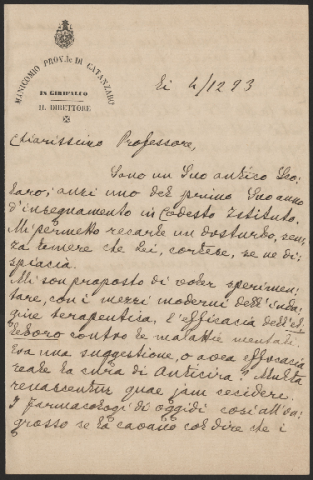 MANICOMIO PROV.LE DI CATANZARO
IN GIRIFALCO
IL DIRETTORE
Li 4/12 93
Chiarissimo Professore,
Sono un Suo antico Sco-
laro; anzi uno del primo Suo anno
d'insegnamento in codesto Istituto.
Mi permetto recarle un disturbo, sen-
za temere che Lei, cortese, se ne di-
spiacia.
Mi son proposto di voler sperimen-
tare, con i mezzi moderni dell'inda-
gine terapeutica, l'efficacia dell'el-
leboro contro le malattie mentali.
Era una suggestione, o avea efficacia
reale la cura di Anticira? Multa
renascentur quae jam cecidere.
I farmacologi di oggidì così all'in-
grosso se la cavano col dire che i